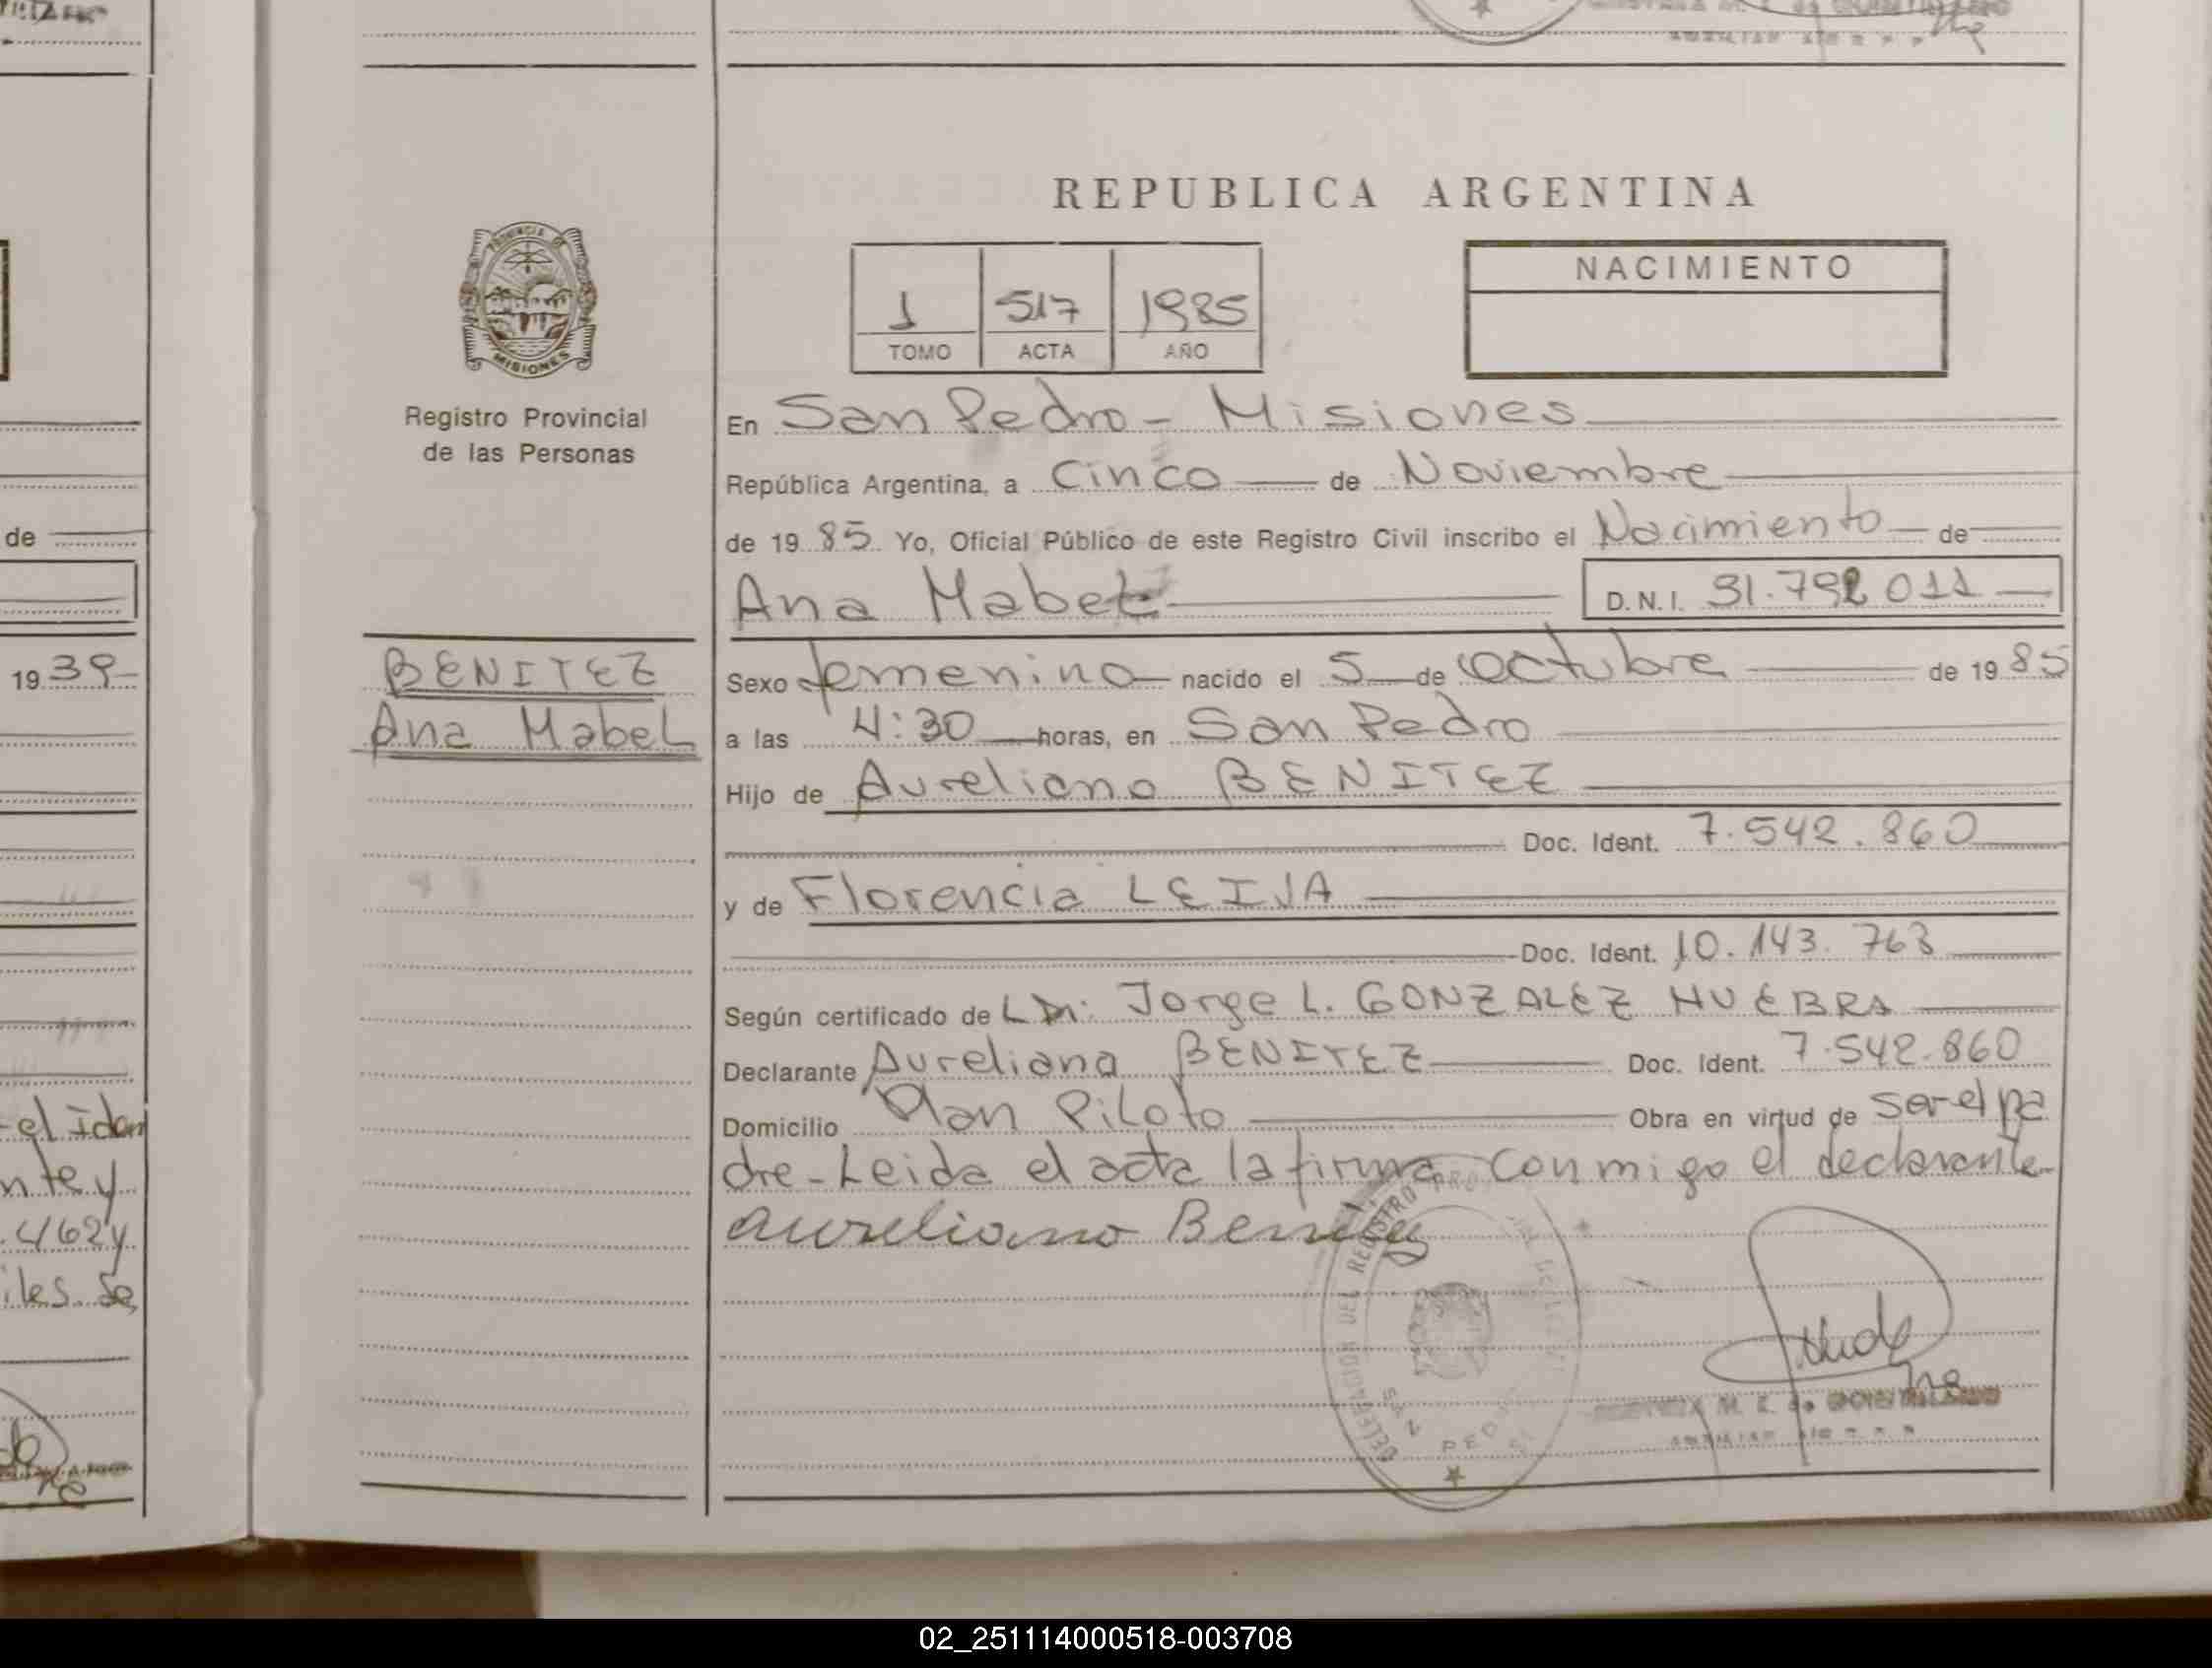 REPUBLICA ARGENTINA
PROVINCIA DE
MISIONES
Registro Provincial
de las Personas
1 517 1985
TOMO ACTA AÑO
NACIMIENTO
En San Pedro - Misiones
República Argentina, a Cinco de Noviembre
de 1985 Yo, Oficial Público de este Registro Civil inscribo el Nacimiento de
Ana Mabel D.N.I. 31.792 011
BENITEZ
Ana Mabel
Sexo femenino nacido el 5 de Octubre de 1985
a las 4:30 horas, en San Pedro
Hijo de Aureliano BENITEZ
Doc. Ident. 7.542.860
y de Florencia LEIJA
Doc. Ident. 10.143.763
Según certificado de Jorge L. GONZALEZ HUEBRA
Declarante Aureliano BENITEZ Doc. Ident. 7.542.860
Domicilio Plan Piloto Obra en virtud de ser el pa
dre - Leida el acta la firma conmigo el declarante
Aureliano Benitez
DELEGACION DEL REGISTRO
SAN PEDRO
M. E. de
de
1939
el
nte y
.462 y
iles se
02_251114000518-003708